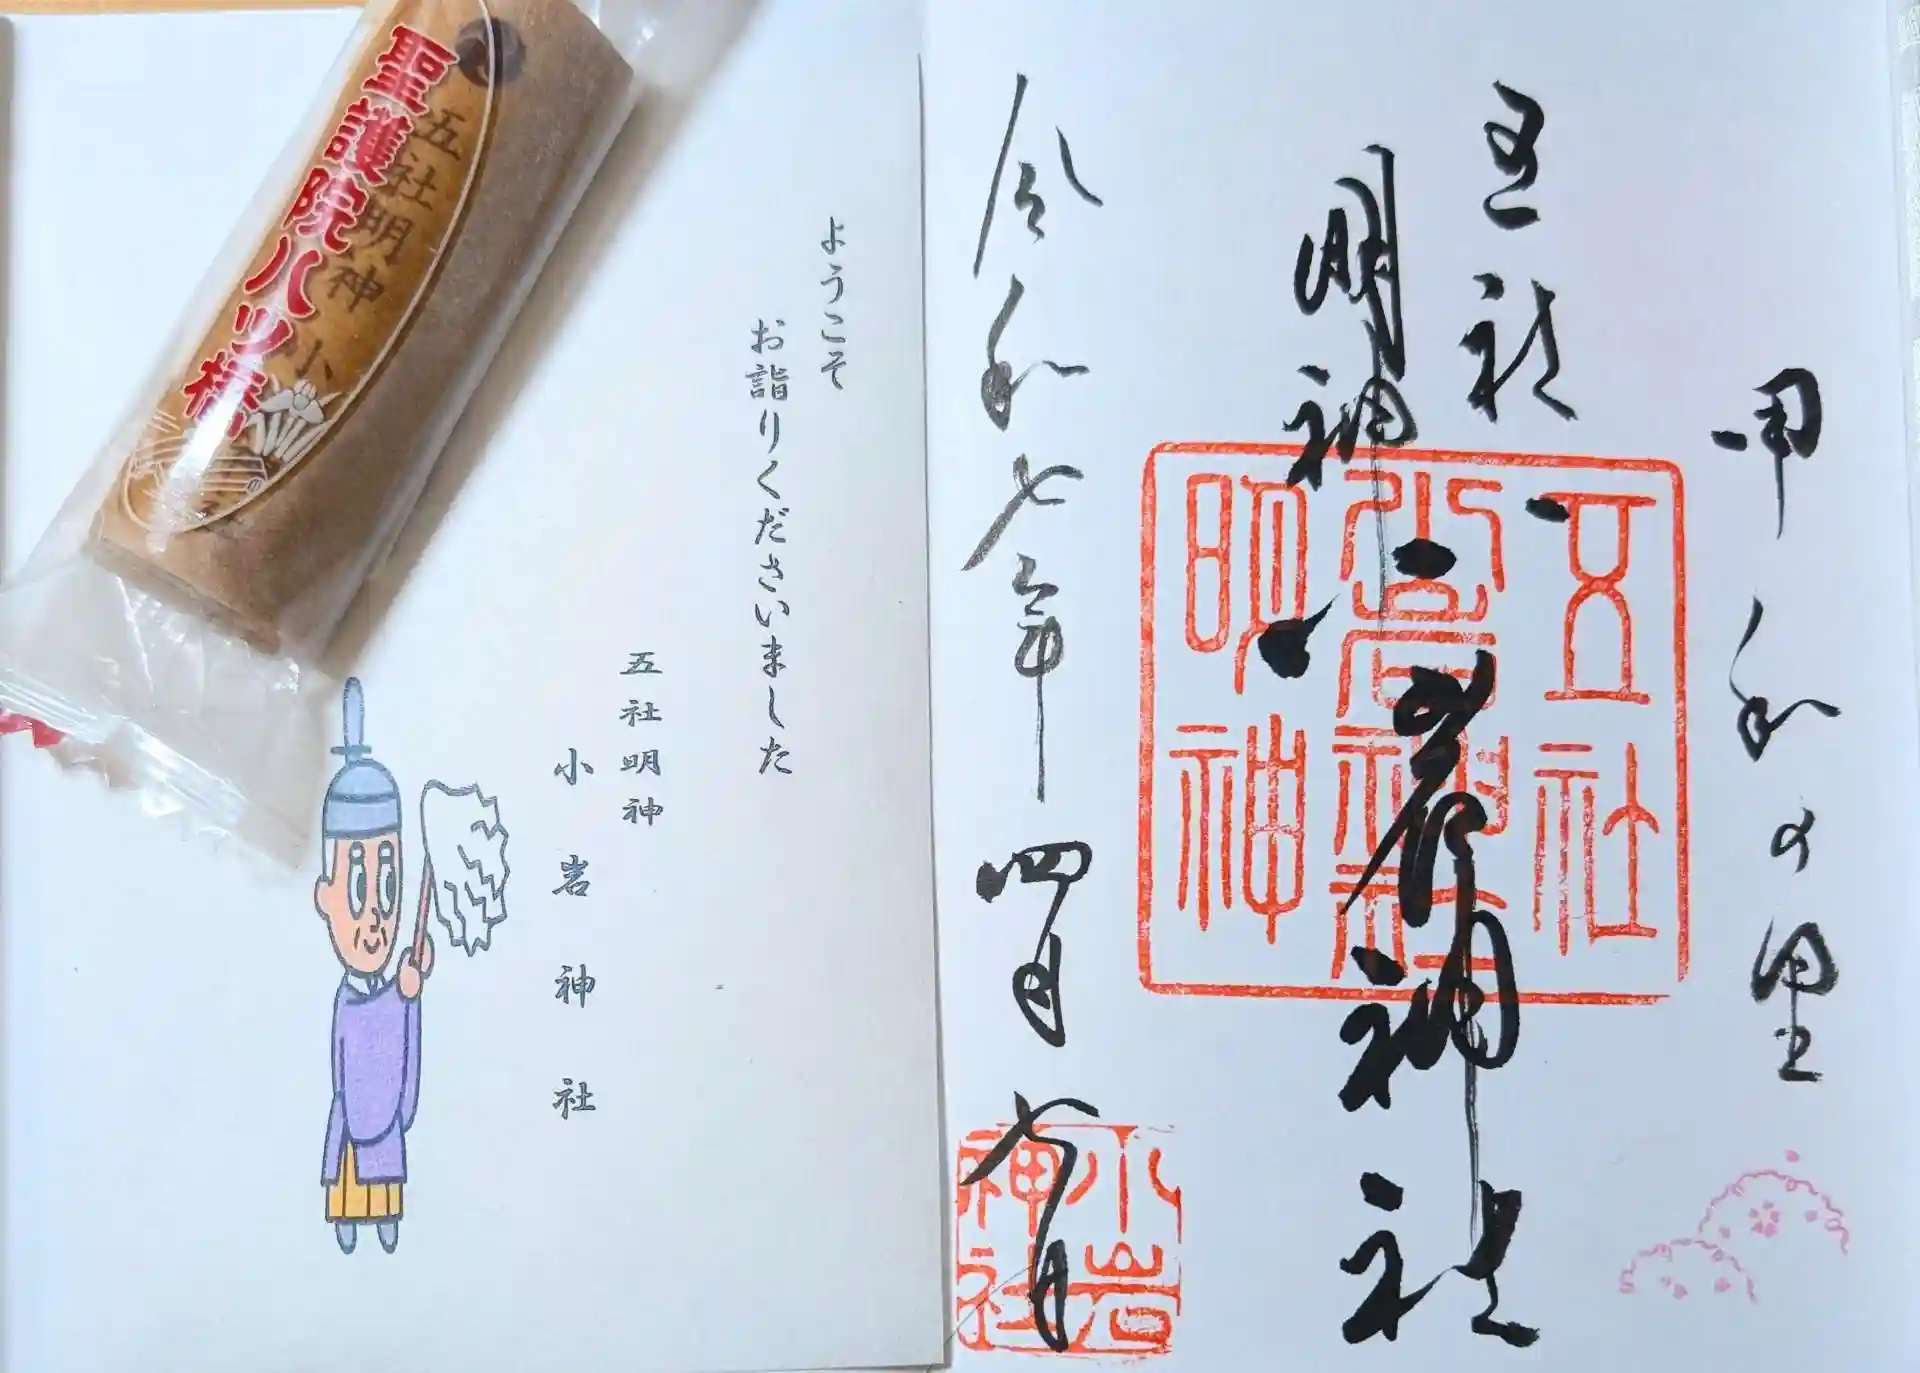 甲和の里
五社
明神
小岩神社
令和七年四月六日
五社
小岩神社
明神
小岩
神社
ようこそ
お詣りくださいました
五社明神
小岩神社
聖護院八ツ橋
五社明神 小